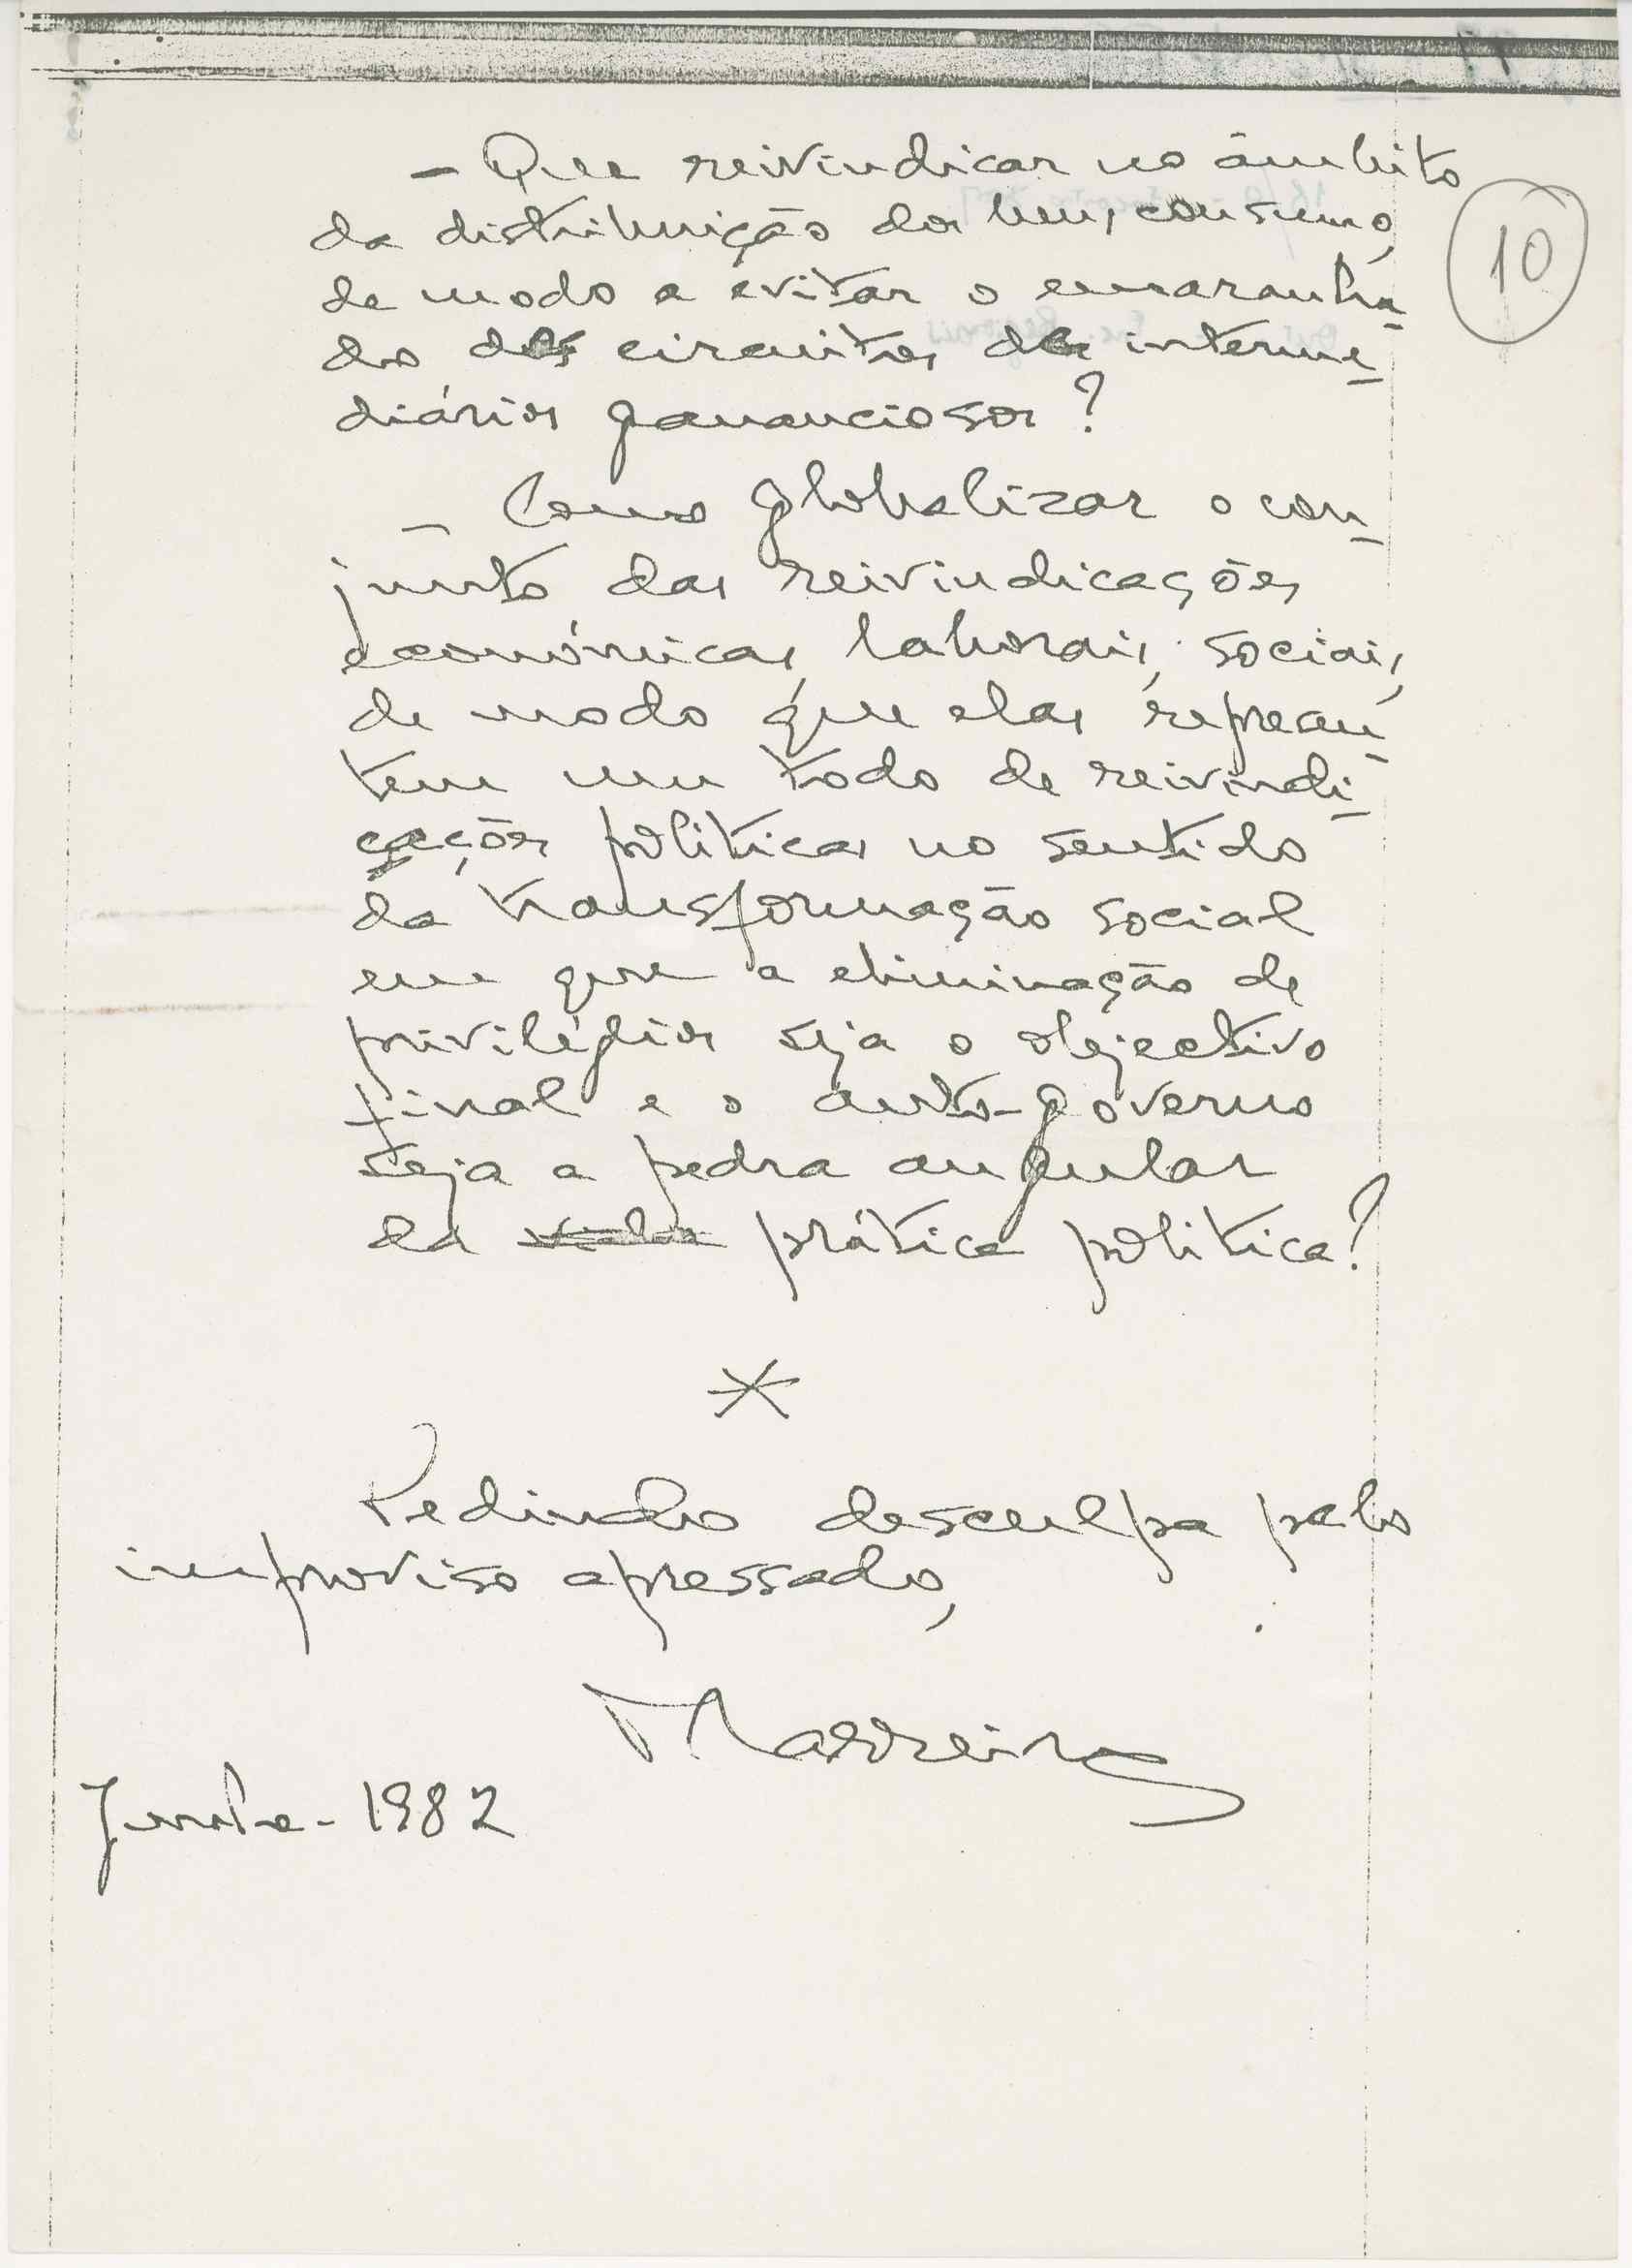 - Que reivindicar no âmbito
da distribuição dos bens consumo,
de modo a evitar o emaranha-
do dos circuitos de interme-
diários gananciosos?
- Como globalizar o con-
junto das reivindicações
económicas, laborais, sociais,
de modo que elas represen-
tem um todo de reivindi-
cações políticas no sentido
da transformação social
em que a eliminação de
privilégios seja o objectivo
final e o auto-governo
seja a pedra angular
da prática política?
*
Pedindo desculpa pelo
improviso apressado,
Marreiros
Junho - 1982
10